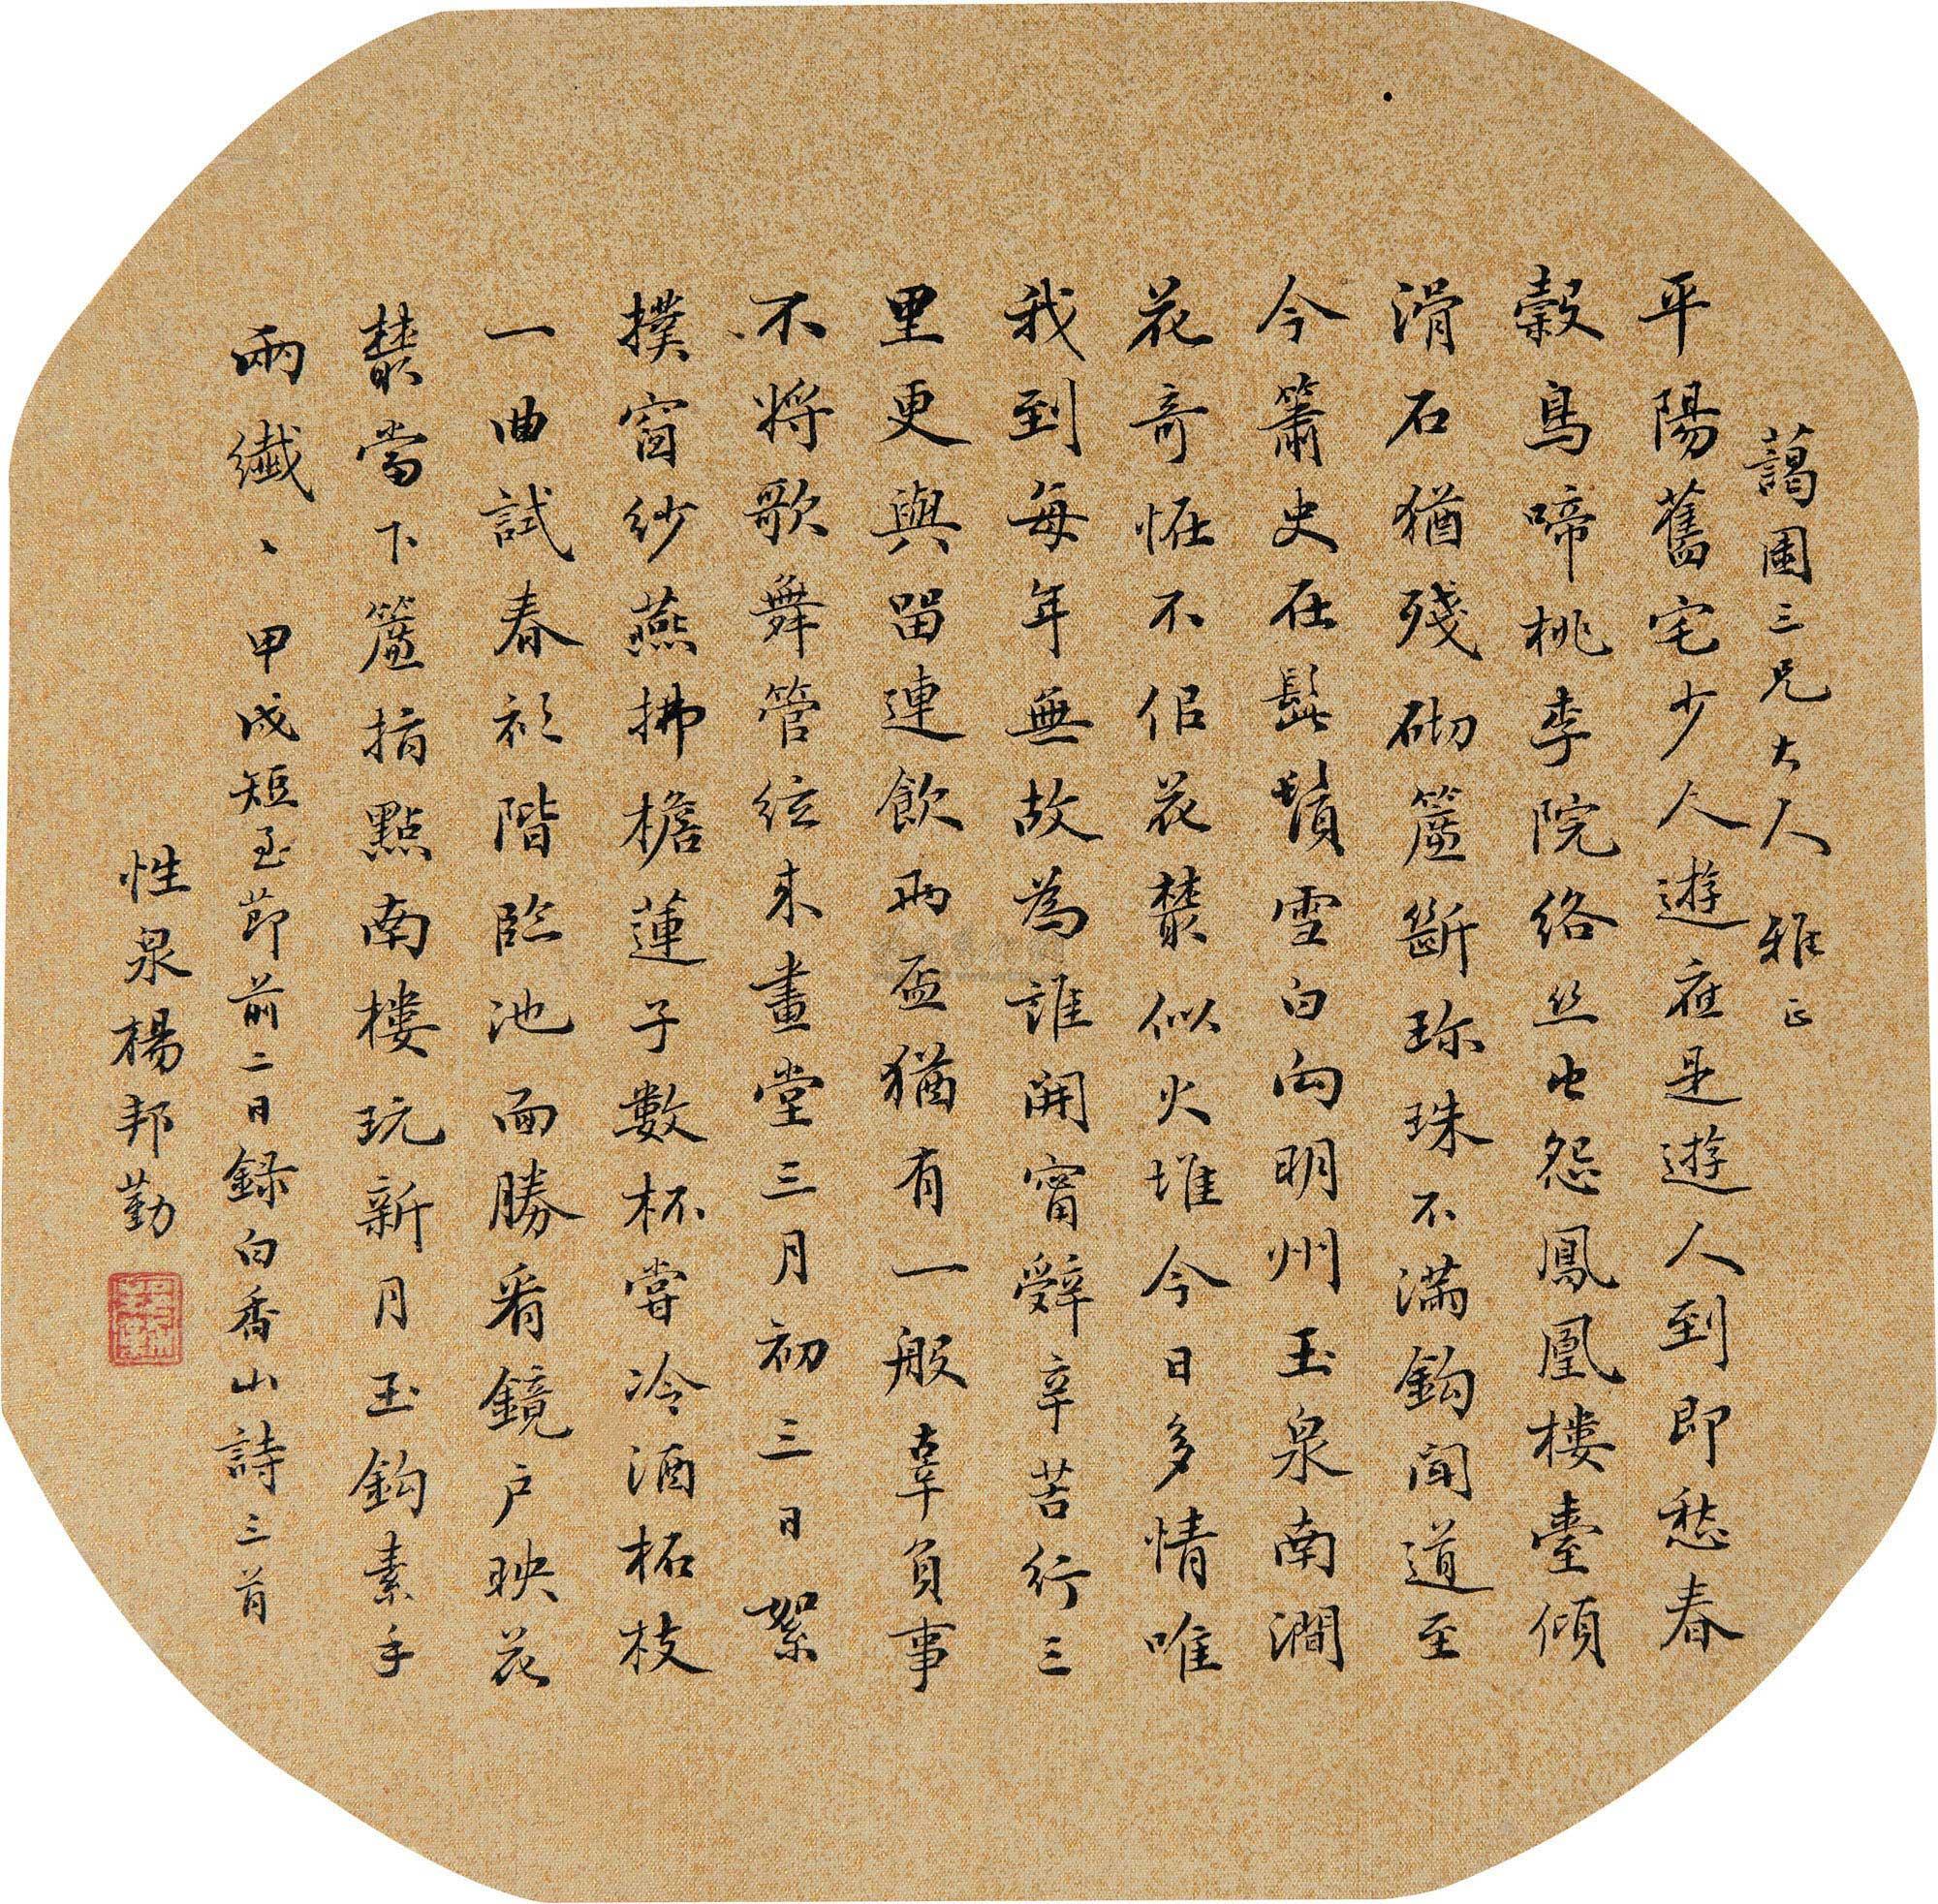 藹圃三兄大人雅正
平陽舊宅少人遊應是遊人到即愁春
穀鳥啼桃李院絡丝虫怨鳳凰樓臺傾
滑石猶殘砌簾斷珎珠不滿鈎聞道至
今簫史在髭鬚雪白向明州玉泉南澗
花奇怪不佀花叢似火堆今日多情唯
我到每年無故為誰開甯辤辛苦行三
里更與畱連飲兩盃猶有一般辜負事
不將歌舞管絃來畫堂三月初三日絮
撲窗紗燕拂檐蓮子數杯嘗冷酒柘枝
一曲試春衫階臨池面勝看鏡户映花
叢當下簾指點南樓玩新月玉鈎素手
兩纖〻甲戌短至節前二日録白香山詩三首
性泉楊邦勤